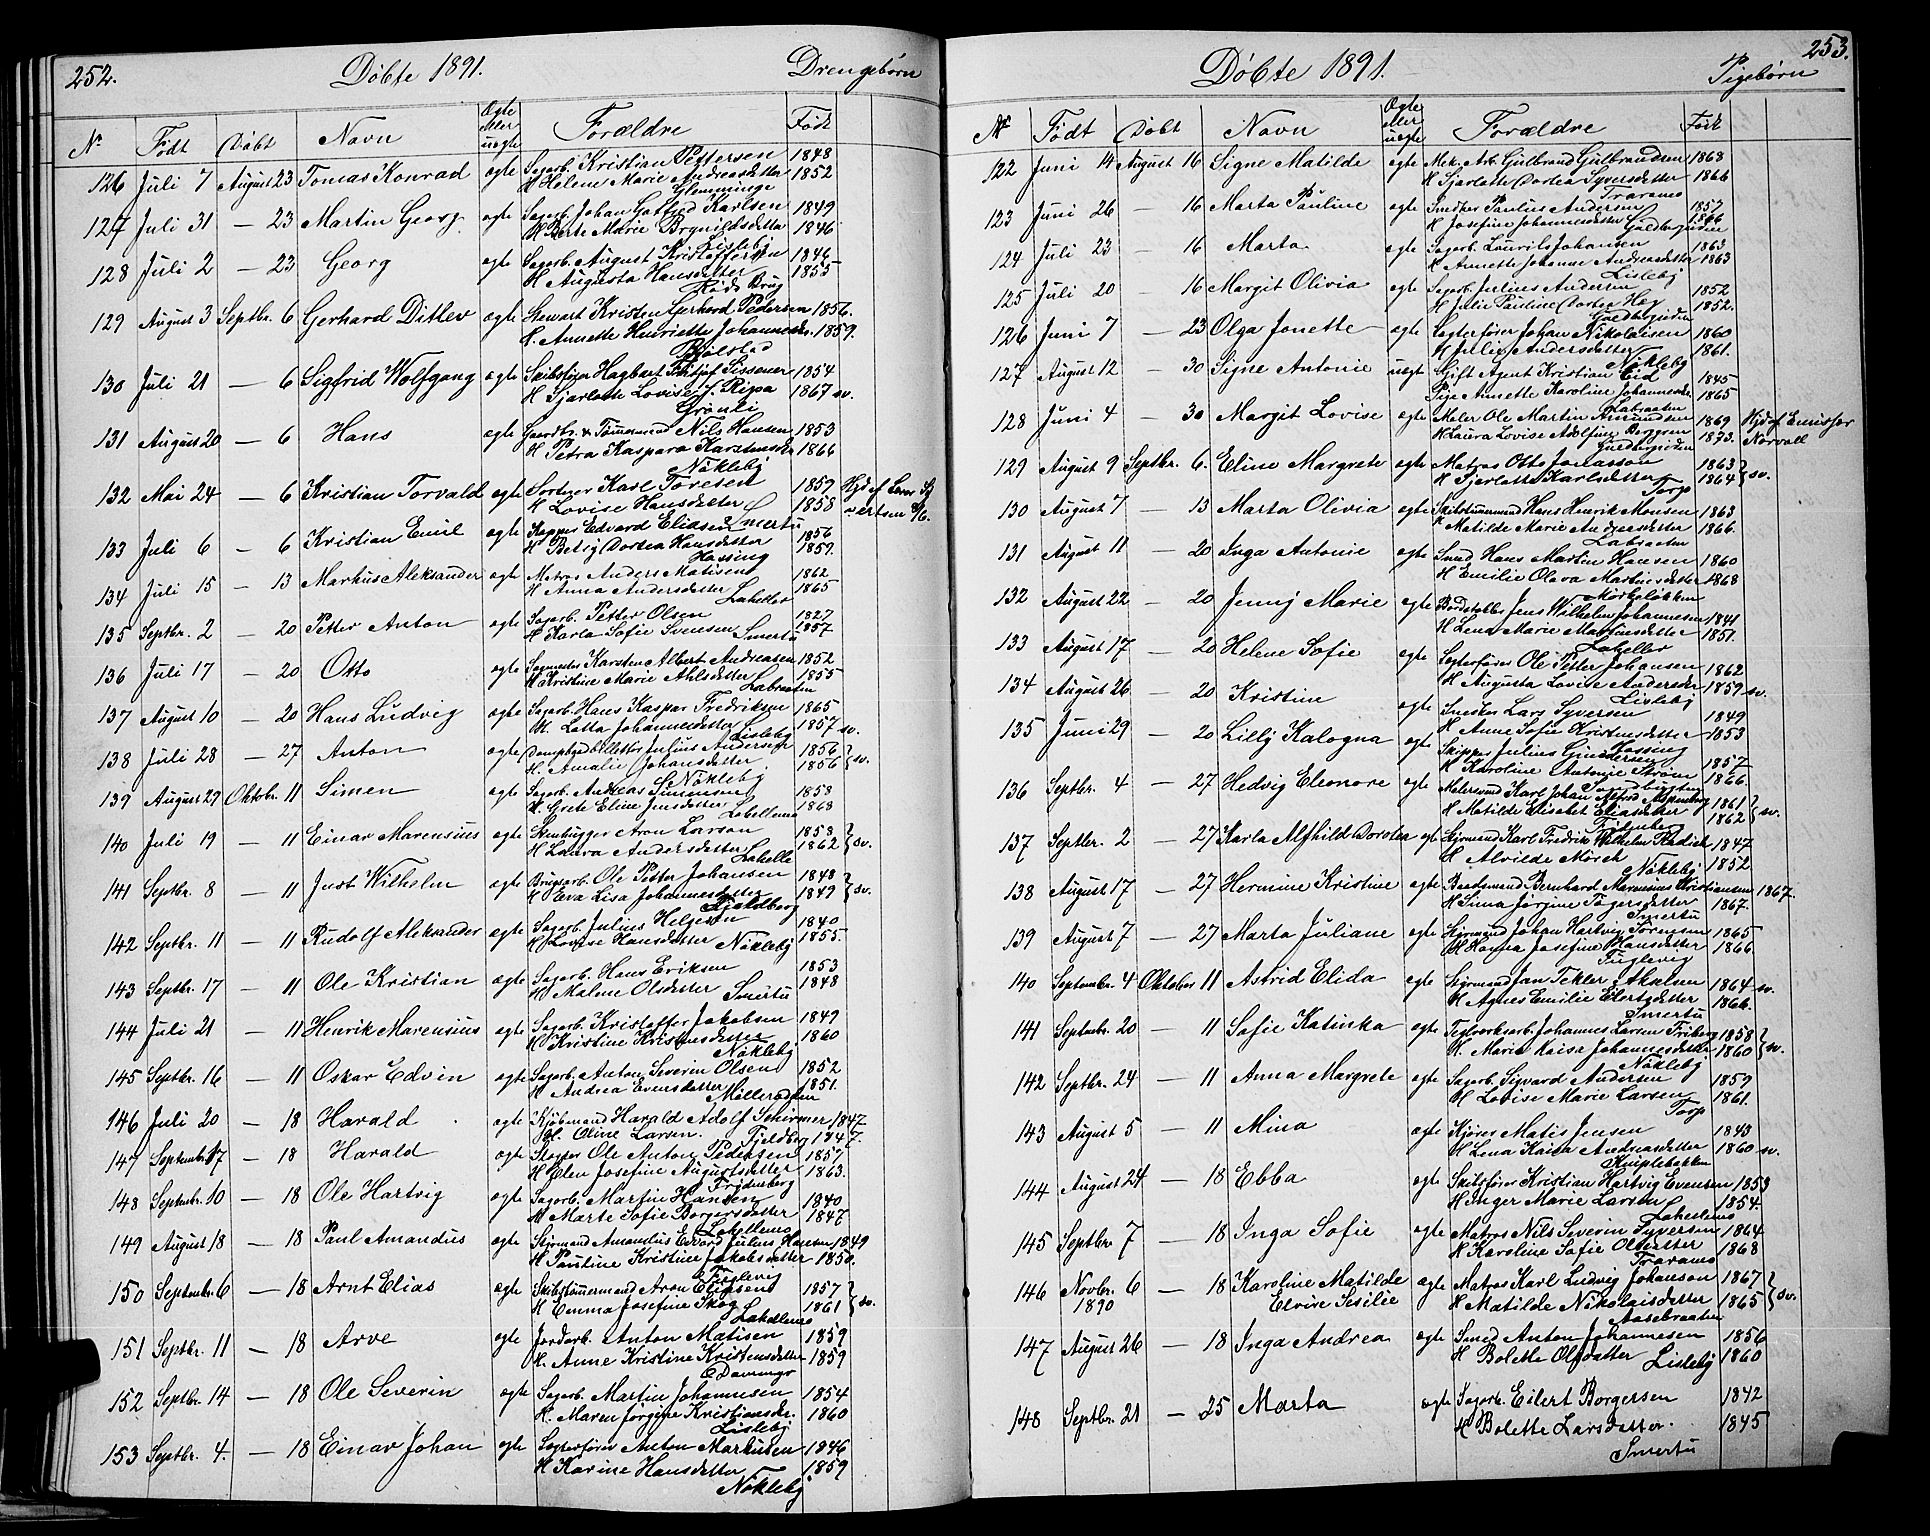 252.
Döbte 1891.
Drengebørn
Nr Født Døbt Navn Ægte eller uægte Forældre Født
126 Juli 7 August 23 Tomas Konrad ægte Sagarb. Kristian Pettersen 1848
H Helene Marie Andreasdatter 1852
Glemminge
127 Juli 31 — 23 Martin Georg ægte Sagarb. Johan Gotfred Karlsen 1849
H Berte Marie Brynildsdatter 1846
Lisleby
128 Juli 2 — 23 Georg ægte Sagarb. August Kristoffersen 1846
H Augusta Hansdatter 1855
Röds Brug
129 August 3 Septbr. 6 Gerhard Ditlev ægte Stewart Kristen Gerhard Pedersen 1856.
H. Annette Henriette Johannesdr. 1859.
Bjölstad
130 Juli 21 — 6 Sigfrid Wolfgang ægte Skibsfører Hagbart Sissener 1854
H Sjarlotte Lovise J. Ripa 1867 sv.
Grönli
131 August 20 — 6 Hans ægte Gaardbr. & Tømmermand Nils Hansen 1853
H Petra Kaspara Karstensdr 1866
Nökleby
132 Mai 24 — 6 Kristian Torvald ægte Sorterer Karl Toresen 1857
H Lovise Hansdatter 1858
Smertu
133 Juli 6 — 6 Kristian Emil ægte Kopper Edvard Eliassen 1856
H Betsy Dortea Hansdatter 1857.
Hassing
134 Juli 15 — 13 Markus Aleksander ægte Matros Anders Matisen 1862
H Anna Andersdatter 1865
Lahellen
135 Septbr. 2 — 20 Petter Anton ægte Sagarb. Petter Olsen 1827
H Karla Sofie Svensen Smertu 1857
136 Juli 17 — 20 Otto ægte Sagmester Karsten Albert Andreasen 1852
H Kristine Marie Ahlsdatter 1855
Labraaten
137 August 10 — 20 Hans Ludvig ægte Sagarb. Hans Kaspar Fredriksen 1865
H. Lotta Johannesdatter 1857 sv.
Lisleby
138 Juli 28 — 27 Anton ægte Julius Andersen 1856
H. Amalie Johansdatter 1856 sv.
Nökleby
139 August 29 Oktobr. 11 Simen ægte Sagarb. Andreas Simensen 1858
H. Grete Eline Jensdatter 1868
Lahellene
140 Juli 19 — 11 Einar Marensius ægte Stenhugger Aron Larson 1853
H Laura Andersdatter 1862 sv.
Lahelle
141 Septbr. 8 — 11 Just Wilhelm ægte Brugsarb. Ole Petter Johansen 1848
H Eva Lisa Johannesdatter 1849 sv.
Fjeldberg
142 Septbr. 11 — 11 Rudolf Aleksander ægte Sagarb. Julius Helgesen 1840
H Lovise Hansdatter Nökleby 1855.
143 Septbr. 17 — 11 Ole Kristian ægte Sagarb. Hans Eriksen 1853
H Malene Olsdatter Smertu 1848
144 Juli 21 — 11 Henrik Marensius ægte Sagarb. Kristoffer Jakobsen 1849
H Kristine Kristensdatter 1860
Nökleby
145 Septbr. 16 — 11 Oskar Edvin ægte Sagarb. Anton Severin Olsen 1852
H Andrea Evensdatter 1851.
Mellerødsten
146 Juli 20 — 18 Harald ægte Kjöbmand Harald Adolf Schirmer 1847
H. Oline Larsen. Fjeldberg 1847.
147 Septembr 17 — 18 Harald ægte Kopper Ole Anton Pedersen 1857
H Elen Josefine Augustdatter 1863.
Fridenberg
148 Septembr. 10 — 18 Ole Hartvig ægte Sagarb. Martin Hansen 1840
H Marte Sofie Borgersdatter 1847
Lahellene
149 August 18 — 18 Paul Amandus ægte Styrmand Amandus Edvard Julius Hansen 1849
H Pauline Kristine Jakobsdatter 1850.
Fuglevig
150 Septembr 6 — 18 Arnt Elias ægte Skibstömmermand Aron Eliasen 1857
H Emma Josefine Skog 1861 sv.
Lahellene
151 Septbr. 11 — 18 Arve ægte Jordarb. Anton Matisen 1859
H. Anne Kristine Kristensdatter 1859
152 Septbr. 14 — 18 Ole Severin ægte Sagarb. Martin Johannesen 1854
H. Maren Jörgine Kristiansdr. 1860
Lisleby
153 Septbr. 4. — 18 Einar Johan ægte Sogterfører Anton Markusen 1846
H Karine Hansdatter 1859
Nökleby
253.
Döbte 1891.
Pigebørn
Nr Født Døbt Navn Ægte eller uægte Forældre Født
122 Juni 14 August 16 Signe Matilde ægte Mek. Arb. Gulbrand Gulbrandsen 1863
H Sjarlotte Dortea Syversdatter 1866
Traramo
123 Juni 26 — 16 Marta Pauline ægte Snedker Paulus Andersen 1857
H Josefine Johannesdatter 1866
Guldbergsiden
124 Juli 23 — 16 Marta ægte Sagarb. Laurits Johansen 1863
H Annette Johanne Andreasdatter 1863
Lisleby
125 Juli 20 — 16 Margit Olivia ægte Sagarb. Julius Andersen 1852
H Julie Pauline Dortea Hey 1852.
Guldbergsiden
126 Juni 7 — 23 Olga Jonette ægte Logterfører Johan Nikolaisen 1860
H Julie Andersdatter 1861.
Nökleby
127 August 12 — 30 Signe Antonie uægt Gift Agent Kristian Eid 1845
Pige Annette Karoline Johannesdr 1865
Labraaten
128 Juni 4 — 30 Margit Lovise ægte Maler Ole Martin Amundsen 1869
H Laura Lovise Adolfine Berggren 1873.
Guldbergsiden
129 August 9 Septbr. 6. Eline Margrete ægte Matros Otto Jonasson 1863
H Sjarlotte Karlsdatter 1864 sv.
Torp
130 August 7 — 13 Marta Olivia ægte Skibstømmermand Hans Henrik Monsen 1863
H Matilde Marie Andreasdatter 1866.
Labraaten
131 August 11 — 20 Inga Antonie ægte Smed Hans Martin Hansen 1860
H Emilie Oleva Martinsdatter 1868
Mörkelökken
132 August 22 — 20 Jenny Marie ægte Jens Wilhelm Johannesen 1841
H Lena Marie Martinsdatter 1851.
Lahellen
133 August 17 — 20 Helene Sofie ægte Sogterfører Ole Petter Johansen 1862
H Augusta Lovise Andersdr 1859 sv.
Lisleby
134 August 26 — 20 Kristine ægte Snedker Lars Syversen 1849
H Anne Sofie Kristensdatter 1853
Hassing
135 Juni 29 — 20 Lilly Kalogna ægte Skipper Julius Gundersen 1857
H Karoline Antonie Ström 1866.
136 Septbr. 4 — 27 Hedvig Eleonore ægte Malersvend Karl Johan Alfred Aspenberg 1861
H Matilde Elisabet Eliasdatter 1862 sv.
Fridenberg
137 Septbr. 2 — 27 Karla Alfhild Dorotea ægt Styrmand Karl Fredrik Wilhelm Radich 1847
H Alvilde Mörch 1852
Nökleby
138 August 17 — 27 Hermine Kristine ægte Baadsmand Bernhard Marensius Kristiansen 1867.
H Sina Jörgine Aagersdatter 1867.
Smertu
139 August 7 — 27 Marta Juliane ægte Styrmand Johan Hartvig Sörensen 1865
H Hanna Josefine Hansdatter 1866
Fuglevig
140 Septembr. 4 Oktober 11 Astrid Elida ægte Styrmand Jan Tekler Akulsen 1864 sv.
H Agnes Emilie Eilertsdatter 1866.
Smertu
141 Septembr. 20 — 11 Sofie Katinka ægte Teglverksarb. Johannes Larsen Friberg 1858
H. Maria Kaisa Johannesdatter 1860 sv.
Nökleby
142 Septbr. 24 — 11 Anna Margrete ægte Sagarb. Sigvard Andersen 1859
H Lovise Marie Larsen 1861.
Torp
143 August 5 — 11 Mina ægte Kjører Matis Jensen 1843
H Lena Kaisa Andreasdatter 1860 sv.
Kniplebakken
144 August 24 — 18 Ebba ægte Skibsfører Kristian Hartvig Evensen 1853
H Inger Marie Larsen 1854.
Lahellene
145 Septbr. 7 — 18 Inga Sofie ægte Matros Nils Severin Syversen 1864
H Karoline Sofie Olsdatter 1868
Traramo
146 Novbr. 6 — 18 Karoline Matilde ægte Matros Karl Ludvig Johanson 1867
1890 Elvire Sesilie H Matilde Nikolaisdatter 1865 sv.
Aasebraaten
147 August 26 — 18 Inga Andrea ægte Smed Anton Johannesen 1856
H Bolette Olsdatter Lisleby 1860
148 Septbr. 21 — 25 Marta ægte Sagarb. Eilert Borgersen 1842
H Bolette Larsdatter. 1845
Smertu